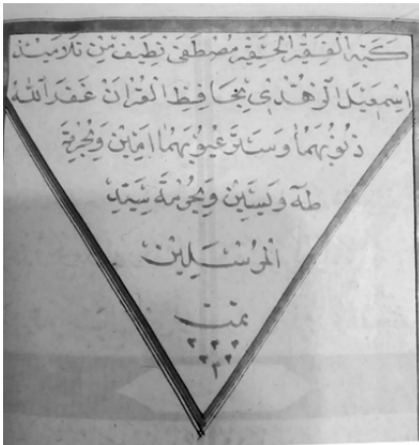 كتبه الفقير الحقير مصطفى نظيف من تلاميذ
اسمعيل الزهدي بحافظ القران غفر الله
ذنوبهما وستر عيوبهما امين وبحرمة
طه ويسين وبحرمة سيد
المرسلين
تمت